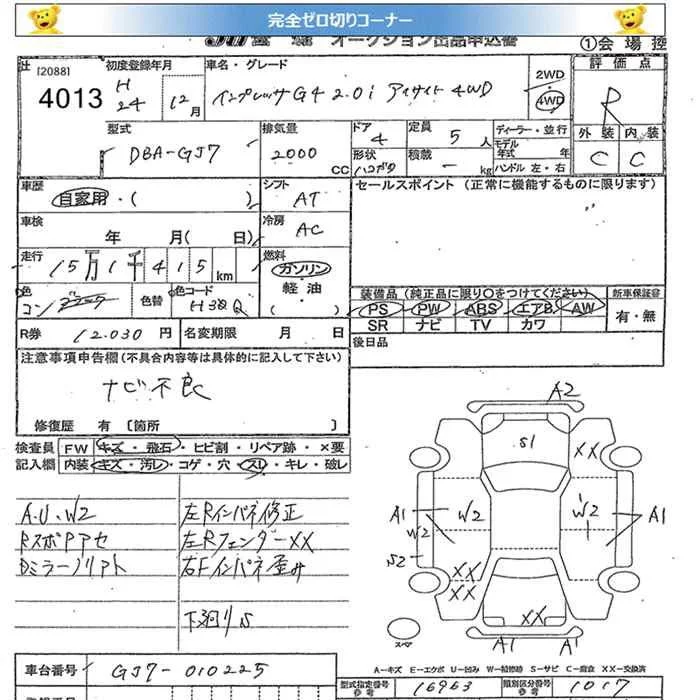 完全ゼロ切りコーナー
オークション出品申込書
①会場控
[2088]
4013
初度登録年月
H
24 12月
車名・グレード
インプレッサG4 2.0i アイサイト 4WD
2WD
4WD
評価点
R
外装 内装
C C
型式
DBA-GJ7
排気量
2000 CC
ドア
4
定員
5 人
ディーラー・並行
モデル年式 年
ハンドル 左・右
形状
積載
- kg
車歴
自家用・( )
シフト
AT
セールスポイント (正常に機能するものに限ります)
車検
年 月(日)
冷房
AC
走行
15万1千415km
燃料
ガソリン
軽油
( )
色
コン
色替
色コード
H3Q
装備品(純正品に限り○をつけてください)
PS PW ABS エアB AW
SR ナビ TV カワ
新車保証書
有・無
R券 12.030 円
名変期限 月 日
後日品
注意事項申告欄(不具合内容等は具体的に記入して下さい)
ナビ不良
修復歴 有 〔箇所 〕
検査員記入欄
FW キズ・飛石・ヒビ割・リペア跡・×要
内装 キズ・汚レ・コゲ・穴・スレ・キレ・破レ
A.U.W2
RスポPアセ
左Rインパネ修正
左RフェンダーXX
右Fインパネ歪み
下廻りS
A2
S1
XX
A1
W2
W2
W2
A1
S2
XX
XX
XX
A1
A1
スペア
A-キズ E-エクボ U-凹み W-補修跡 S-サビ C-腐食 XX-交換済
車台番号
GJ7-010225
型式指定番号
参考
16963
類別区分番号
参考
1017